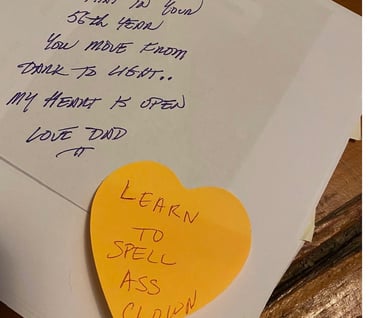 THAT IN YOUR
56th YEAR
YOU MOVE FROM
DARK TO LIGHT..
MY HEART IS OPEN
LOVE DAD
LEARN
TO
SPELL
ASS
CLOWN